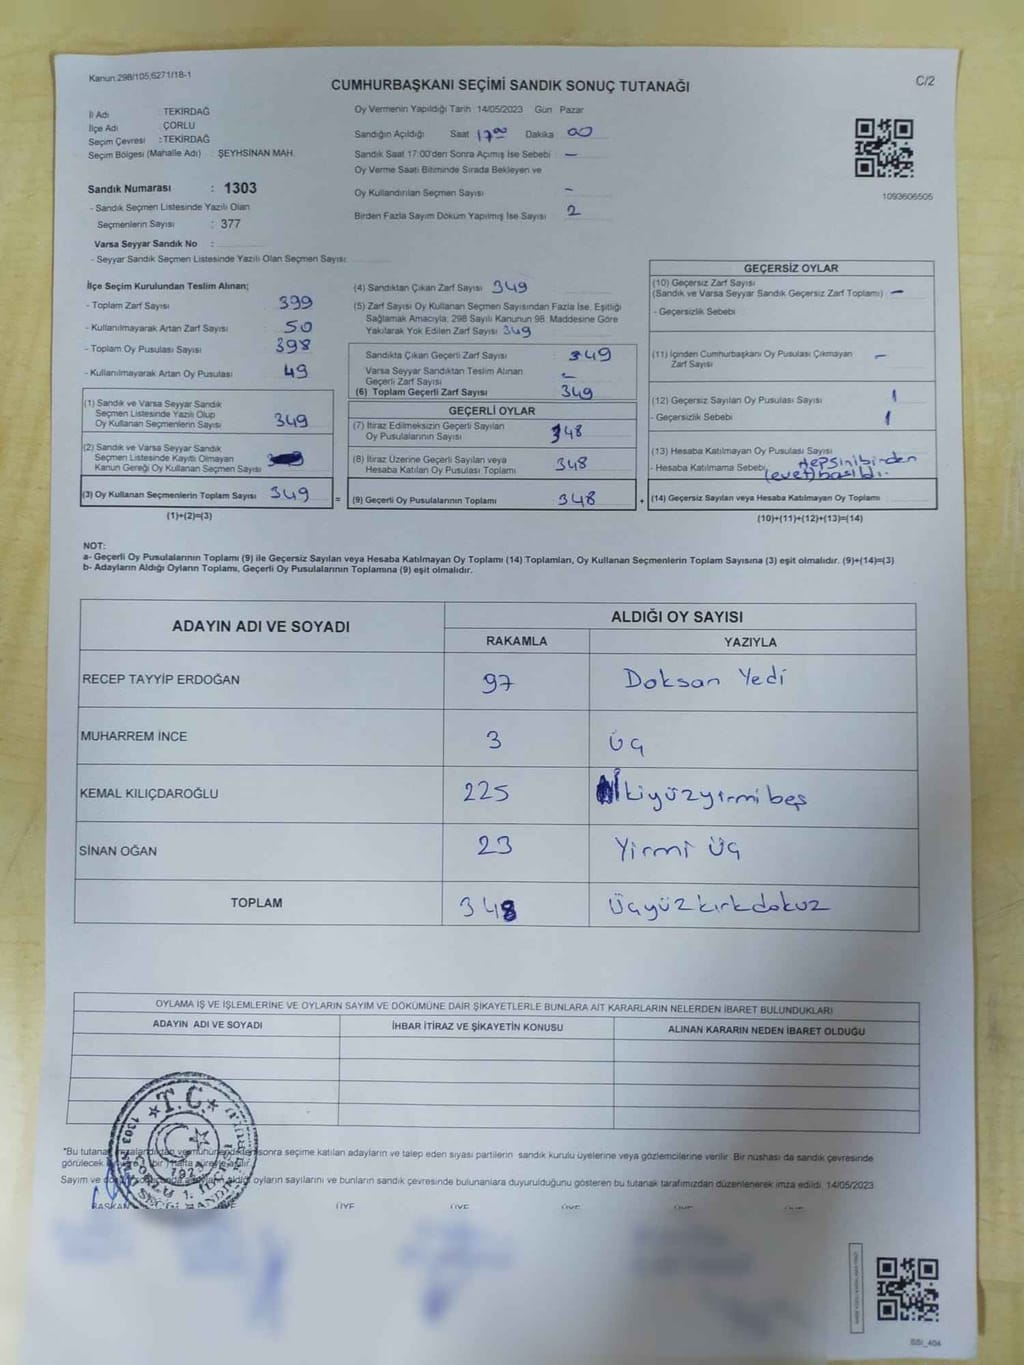 Kanun:298/105;6271/18-1
CUMHURBAŞKANI SEÇİMİ SANDIK SONUÇ TUTANAĞI
C/2
İl Adı : TEKİRDAĞ
İlçe Adı : ÇORLU
Seçim Çevresi : TEKİRDAĞ
Seçim Bölgesi (Mahalle Adı) : ŞEYHSİNAN MAH.
Sandık Numarası : 1303
- Sandık Seçmen Listesinde Yazılı Olan
Seçmenlerin Sayısı : 377
Varsa Seyyar Sandık No :
- Seyyar Sandık Seçmen Listesinde Yazılı Olan Seçmen Sayısı:
Oy Vermenin Yapıldığı Tarih :14/05/2023 Gün Pazar
Sandığın Açıldığı Saat 17:00 Dakika : 00
Sandık Saat 17:00'den Sonra Açımış İse Sebebi : —
Oy Verme Saati Bitiminde Sırada Bekleyen ve
Oy Kullandırılan Seçmen Sayısı –
Birden Fazla Sayım Döküm Yapılmış İse Sayısı 2
1093606505
İlçe Seçim Kurulundan Teslim Alınan;
- Toplam Zarf Sayısı 399
- Kullanılmayarak Artan Zarf Sayısı 50
- Toplam Oy Pusulası Sayısı 398
- Kullanılmayarak Artan Oy Pusulası 49
(1) Sandık ve Varsa Seyyar Sandık
Seçmen Listesinde Yazılı Olup
Oy Kullanan Seçmenlerin Sayısı 349
(2) Sandık ve Varsa Seyyar Sandık
Seçmen Listesinde Kayıtlı Olmayan
Kanun Gereği Oy Kullanan Seçmen Sayısı
(3) Oy Kullanan Seçmenlerin Toplam Sayısı 349 =
(1)+(2)=(3)
(4) Sandıktan Çıkan Zarf Sayısı 349
(5) Zarf Sayısı Oy Kullanan Seçmen Sayısından Fazla İse, Eşitliği
Sağlamak Amacıyla; 298 Sayılı Kanunun 98. Maddesine Göre
Yakılarak Yok Edilen Zarf Sayısı 349
Sandıkta Çıkan Geçerli Zarf Sayısı 349
Varsa Seyyar Sandıktan Teslim Alınan
Geçerli Zarf Sayısı –
(6) Toplam Geçerli Zarf Sayısı 349
GEÇERLİ OYLAR
(7) İtiraz Edilmeksizin Geçerli Sayılan
Oy Pusulalarının Sayısı 348
(8) İtiraz Üzerine Geçerli Sayılan veya
Hesaba Katılan Oy Pusulası Toplamı 348
(9) Geçerli Oy Pusulalarının Toplamı 348 +
GEÇERSİZ OYLAR
(10) Geçersiz Zarf Sayısı
(Sandık ve Varsa Seyyar Sandık Geçersiz Zarf Toplamı) —
- Geçersizlik Sebebi
(11) İçinden Cumhurbaşkanı Oy Pusulası Çıkmayan
Zarf Sayısı –
(12) Geçersiz Sayılan Oy Pusulası Sayısı 1
- Geçersizlik Sebebi 1
(13) Hesaba Katılmayan Oy Pusulası Sayısı
- Hesaba Katılmama Sebebi Hepsinibirden
(evet) basıldı.
(14) Geçersiz Sayılan veya Hesaba Katılmayan Oy Toplamı
(10)+(11)+(12)+(13)=(14)
NOT:
a- Geçerli Oy Pusulalarının Toplamı (9) ile Geçersiz Sayılan veya Hesaba Katılmayan Oy Toplamı (14) Toplamları, Oy Kullanan Seçmenlerin Toplam Sayısına (3) eşit olmalıdır. (9)+(14)=(3)
b- Adayların Aldığı Oyların Toplamı, Geçerli Oy Pusulalarının Toplamına (9) eşit olmalıdır.
ADAYIN ADI VE SOYADI
ALDIĞI OY SAYISI
RAKAMLA YAZIYLA
RECEP TAYYİP ERDOĞAN 97 Doksan Yedi
MUHARREM İNCE 3 Üç
KEMAL KILIÇDAROĞLU 225 ikiyüzyirmibeş
SİNAN OĞAN 23 Yirmi Üç
TOPLAM 348 Üçyüzkırkdokuz
OYLAMA İŞ VE İŞLEMLERİNE VE OYLARIN SAYIM VE DÖKÜMÜNE DAİR ŞİKAYETLERLE BUNLARA AİT KARARLARIN NELERDEN İBARET BULUNDUKLARI
ADAYIN ADI VE SOYADI İHBAR İTİRAZ VE ŞİKAYETİN KONUSU ALINAN KARARIN NEDEN İBARET OLDUĞU
T.C.
1303
*Bu tutanak sonra seçime katılan adayların ve talep eden siyasi partilerin sandık kurulu üyelerine veya gözlemcilerine verilir. Bir nüshası da sandık çevresinde
görülecek
Sayım ve oyların sayılarını ve bunların sandık çevresinde bulunanlara duyurulduğunu gösteren bu tutanak tarafımızdan düzenlenerek imza edildi. 14/05/2023
BAŞKAN ÜYE ÜYE ÜYE ÜYE ÜYE